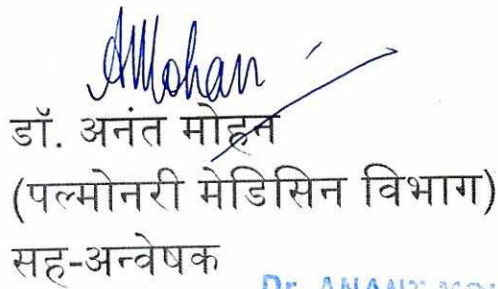 AMohan
डॉ. अनंत मोहन
(पल्मोनरी मेडिसिन विभाग)
सह-अन्वेषक
Dr. ANANT